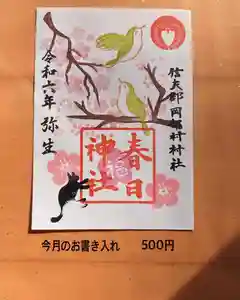 信夫郡岡部村村社
春日
神社
令和六年 弥生
今月のお書き入れ 500円